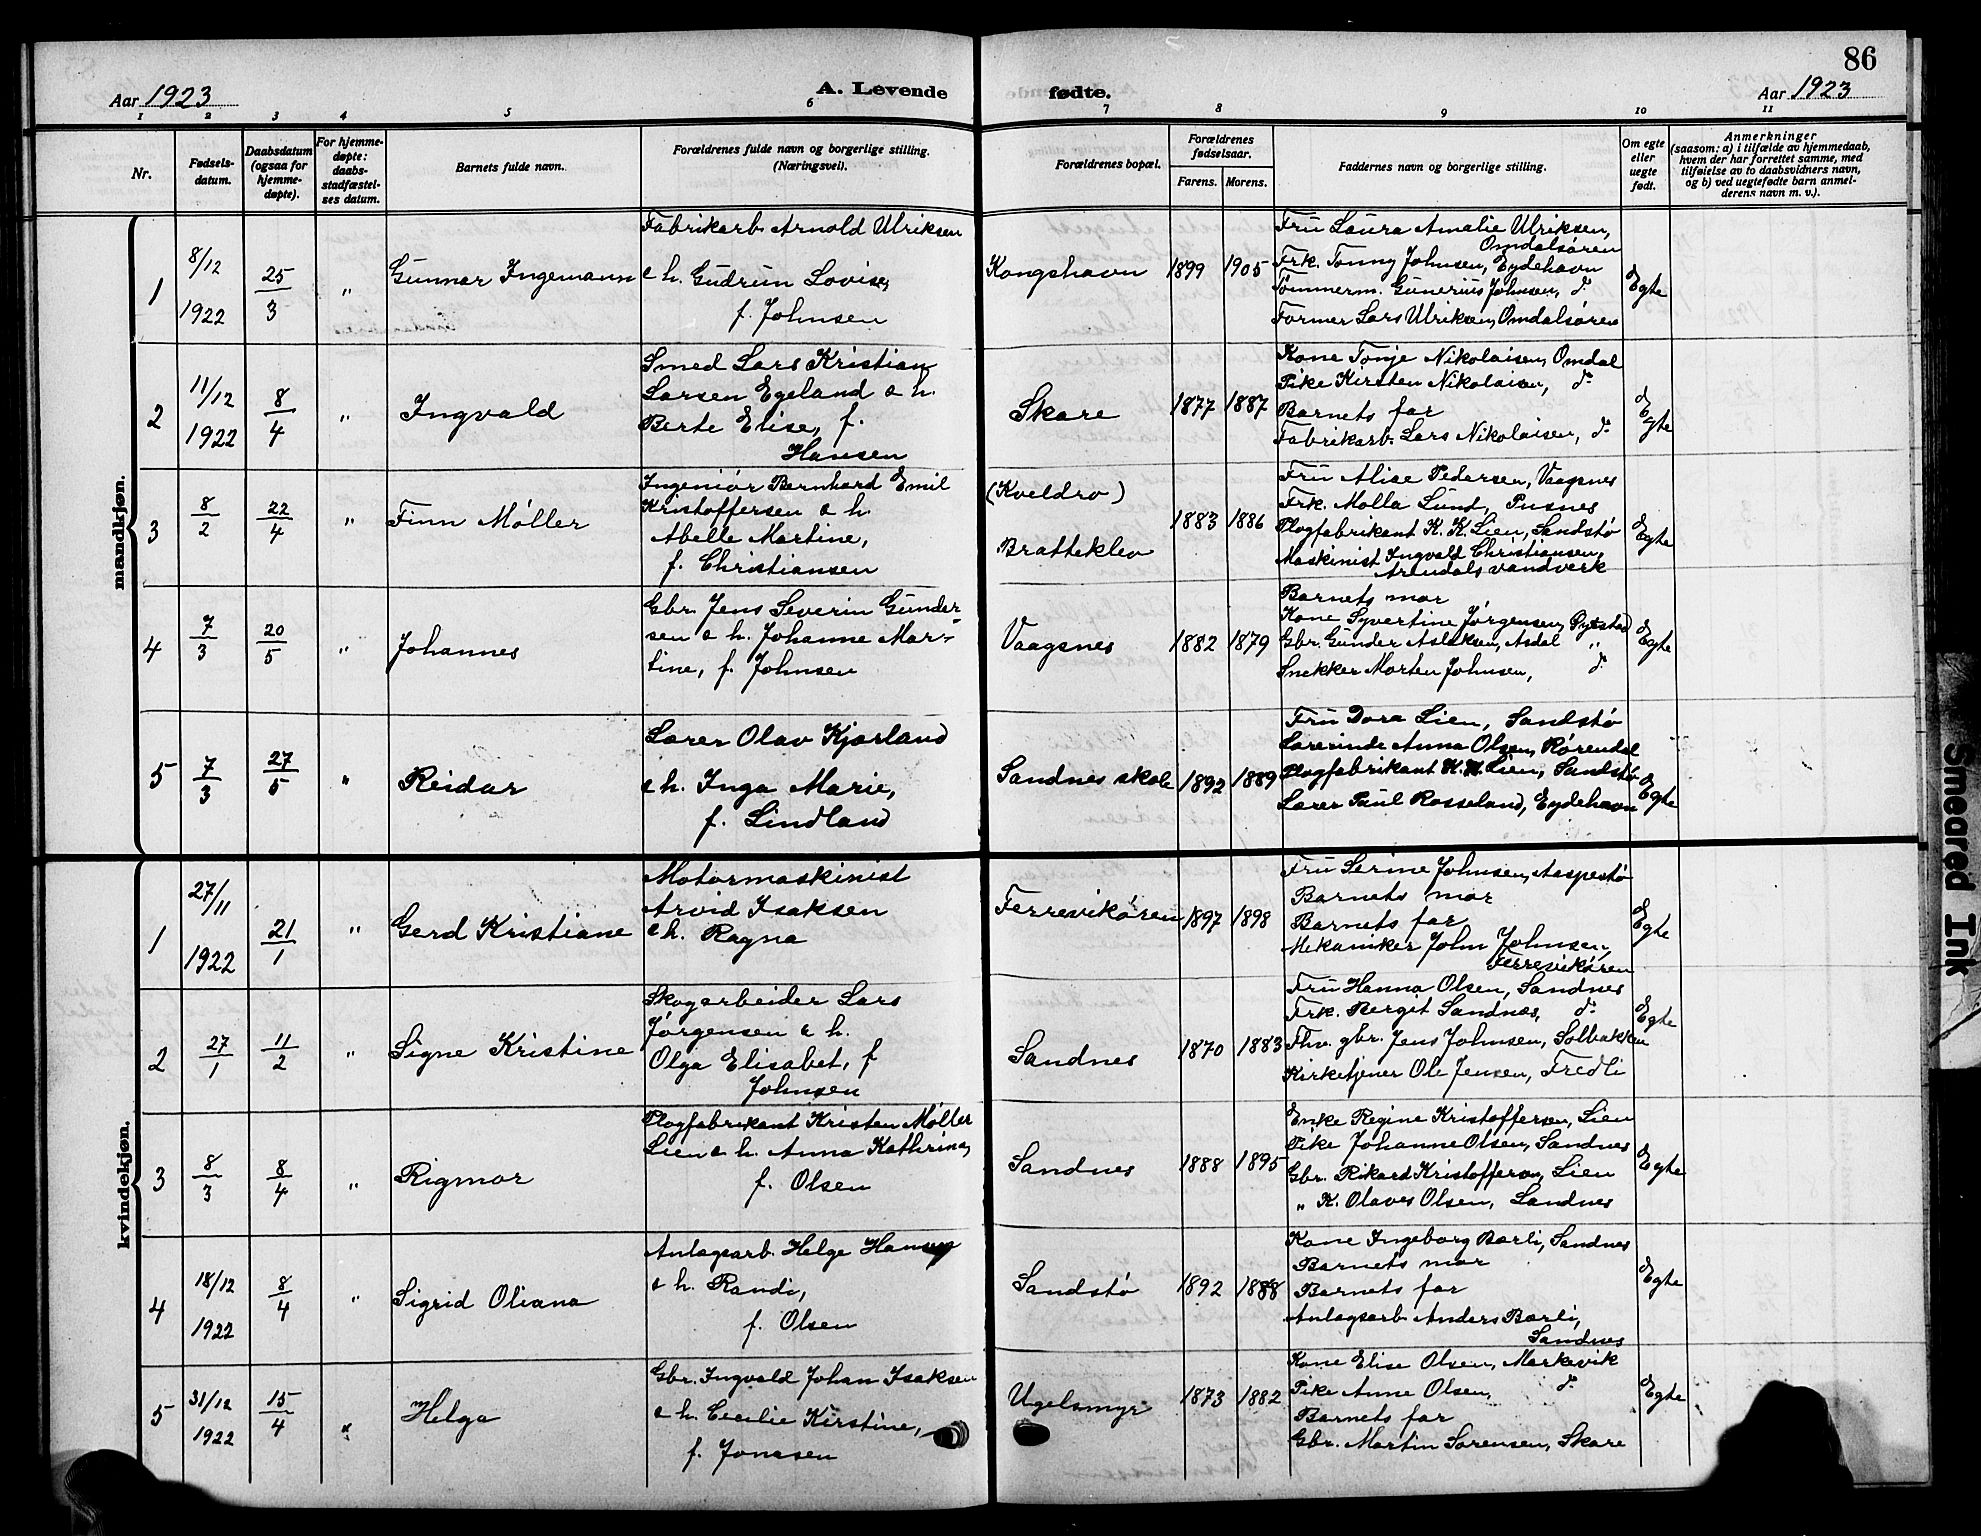 86
Aar 1923
A. Levende
fødte.
Aar 1923
1 2 3 4 5 6 7 8 9 10 11
Nr.
Fødsels-
datum.
Daabsdatum
(ogsaa for
hjemme-
døpte).
For hjemme-
døpte:
daabs-
stadfæstel-
ses datum.
Barnets fulde navn.
Forældrenes fulde navn og borgerlige stilling.
(Næringsvei).
Forældrenes bopæl.
Forældrenes
fødselsaar.
Farens. Morens.
Faddernes navn og borgerlige stilling.
Om egte
eller
uegte
født.
Anmerkninger
(saasom: a) i tilfælde av hjemmedaab,
hvem der har forrettet samme, med
tilføielse av to daabsvidners navn,
og b) ved uegtefødte barn anmel-
derens navn m. v.).
mandkjøn.
1
8/12
1922
25/3
"
Gunnar Ingemann
Fabrikarb. Arnold Ulriksen
o h. Gudrun Lovise,
f. Johnsen
Kongshavn
1899
1905
Fru Laura Amalie Ulriksen,
Omdalsøren
Frk. Tonny Johnsen, Eydehavn
Tømmerm. Gunerius Johnsen, d.
Former Lars Ulriksen, Omdalsøren
Egte
2
11/12
1922
8/4
"
Ingvald
Smed Lars Kristian
Larsen Egeland o h.
Berte Elise, f.
Hansen
Skare
1877
1887
Kone Tonje Nikolaisen, Omdal
Pike Kirsten Nikolaisen, d.
Barnets far
Fabrikarb. Lars Nikolaisen, d.
Egte
3
8/2
22/4
"
Finn Møller
Ingeniør Bernhard Emil
Kristoffersen o h.
Abelle Martine,
f. Christiansen
(Kveldro)
Bratteklev
1883
1886
Fru Alise Pedersen, Vaagsnes
Frk. Molla Lund, Pusnes
Plogfabrikant K. K. Lien, Sandstø
Maskinist Ingvald Christiansen,
Arendals vandverk
Egte
4
7/3
20/5
"
Johannes
Gbr. Jens Severin Gunder-
sen o h. Johanne Mar-
tine, f. Johnsen
Vaagsnes
1882
1879
Barnets mor
Kone Syvertine Jørgensen,
Gbr. Gunder Aslaksen, Asdal "
Snekker Morten Johnsen, d.
Egte
5
7/3
27/5
"
Reidar
Lærer Olav Kjørland
o h. Inga Marie,
f. Lindland
Sandnes skole
1892
1889
Fru Dora Lien, Sandstø
Lærerinde Anna Olsen, Rørendal
Plogfabrikant K. M. Lien, Sandstø
Lærer Paul Rosseland, Eydehavn
Egte
kvindekjøn.
1
27/11
1922
21/1
"
Gerd Kristiane
Motormaskinist
Arvid Isaksen
o h. Ragna
Ferrevikøren
1897
1898
Fru Serine Johnsen, Aaspestø
Barnets mor
Barnets far
Mekaniker John Johnsen,
Ferrevikøren
Egte
2
27/1
11/2
"
Signe Kristine
Skogarbeider Lars
Jørgensen o h.
Olga Elisabet, f
Johnsen
Sandnes
1870
1883
Fru Hanna Olsen, Sandnes
Frk. Bergit Sandnes, d.
Fhv. gbr. Jens Johnsen, Solbakken
Kirketjener Ole Jensen, Fredli
Egte
3
8/3
8/4
"
Rigmor
Plogfabrikant Kristen Møller
Lien o h. Anna Kathrine,
f. Olsen
Sandnes
1888
1895
Enke Regine Kristoffersen, Lien
Pike Johanne Olsen, Sandnes
Gbr. Rikard Kristoffersen, Lien
" K. Olaves Olsen, Sandnes
Egte
4
18/12
1922
8/4
"
Sigrid Oliana
Anlagsarb. Helge Hansen
o h. Randi,
f. Olsen
Sandstø
1892
1888
Kone Ingeborg Barli, Sandnes
Barnets mor
Barnets far
Anlagsarb. Anders Barli,
Sandnes
Egte
5
31/12
1922
15/4
"
Helga
Gbr. Ingvald Johan Isaksen
o h. Cecilie Kirstine,
f. Jonassen
Ugelsmyr
1873
1882
Kone Elise Olsen, Markevik
Pike Anne Olsen, d.
Barnets far
Gbr. Martin Sørensen, Skare
Egte
Smeared Ink